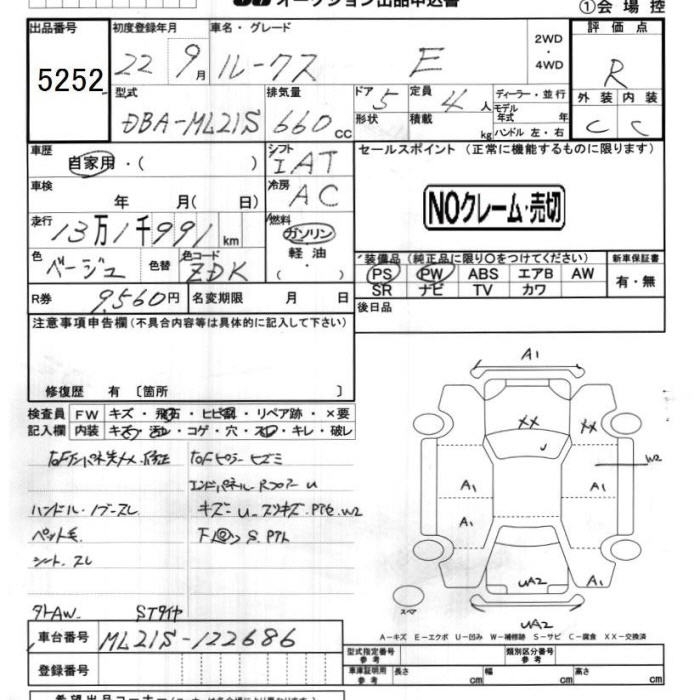 オークション出品申込書
①会場控
出品番号 初度登録年月 車名・グレード 2WD・4WD 評価点
5252 22 9月 ルークス E R
型式 排気量 ドア 5 定員 4人 ディーラー・並行 外装 内装
DBA-ML21S 660cc 形状 積載 kg モデル年式 年 ハンドル 左・右 C C
車歴 自家用・( ) シフト IAT セールスポイント (正常に機能するものに限ります)
車検 年 月( 日) 冷房 AC
NOクレーム・売切
走行 13万1千991km 燃料 ガソリン・軽油・( )
色 ベージュ 色替 色コード ZDK
装備品(純正品に限り○をつけてください) 新車保証書
PS PW ABS エアB AW 有・無
SR ナビ TV カワ
R券 9,560円 名変期限 月 日 後日品
注意事項申告欄(不具合内容等は具体的に記入して下さい)
修復歴 有 〔箇所 〕
検査員 FW キズ・飛石・ヒビ割・リペア跡・×要
記入欄 内装 キズ・汚レ・コゲ・穴・スレ・キレ・破レ
右Fピラー ヒズミ
エンドパネル Rフロアー U
ハンドル・ノブースレ
キズー U
ペット毛
シート スレ
STタイヤ
A1
XX
XX
W2
A1
A1
A1
A1
UA2
スペア
UA2
A-キズ E-エクボ U-凹み W-補修跡 S-サビ C-腐食 XX-交換済
車台番号 ML21S-122686
型式指定番号 参考 類別区分番号 参考
登録番号
車庫証明用 参考 長さ cm 幅 cm 高さ cm